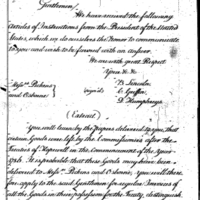 Gentlemen,
We have received the following
Articles of Instructions from the President of the United
States, which we do ourselves the Honor to communicate
to you and wish to be favored with an answer.
We are with great Respect
B. Lincoln
Messrs Pickens and Osborne
signed
C. Griffin
D. Humphreys
(Extract)
You will learn by the Papers delivered to you, that
certain Goods were left by the Commissioners after the
Treaties of Hopewell in the Commencement of the Year
1786. It is probable that these Goods may have been
delivered to Messrs Pickens and Osborne, You will there
fore apply to the said Gentlemen for regular Invoices of
all the Goods in their possession for the Treaty, distinguish